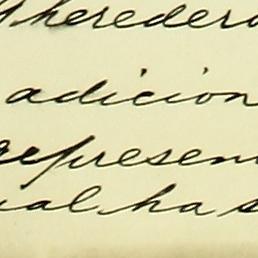 heredero
adicion
represen
ial ha s